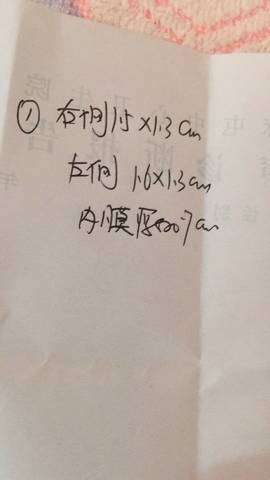 ① 右侧 1.5×1.3cm
左侧 1.6×1.3cm
内膜厚 0.7cm